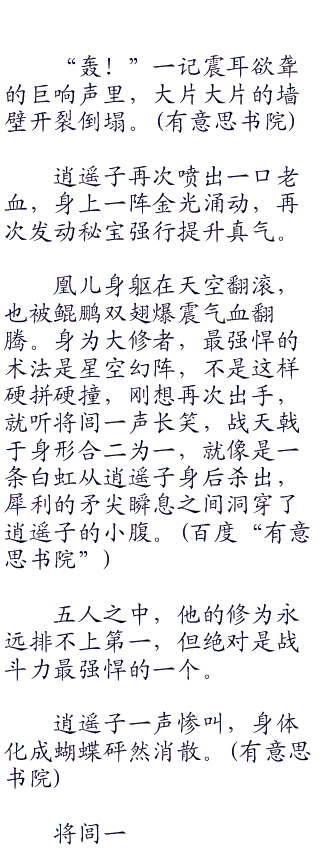 “轰！”一记震耳欲聋
的巨响声里，大片大片的墙
壁开裂倒塌。(有意思书院)
逍遥子再次喷出一口老
血，身上一阵金光涌动，再
次发动秘宝强行提升真气。
凰儿身躯在天空翻滚，
也被鲲鹏双翅爆震气血翻
腾。身为大修者，最强悍的
术法是星空幻阵，不是这样
硬拼硬撞，刚想再次出手，
就听将闾一声长笑，战天戟
于身形合二为一，就像是一
条白虹从逍遥子身后杀出，
犀利的矛尖瞬息之间洞穿了
逍遥子的小腹。(百度“有意
思书院”)
五人之中，他的修为永
远排不上第一，但绝对是战
斗力最强悍的一个。
逍遥子一声惨叫，身体
化成蝴蝶砰然消散。(有意思
书院)
将闾一